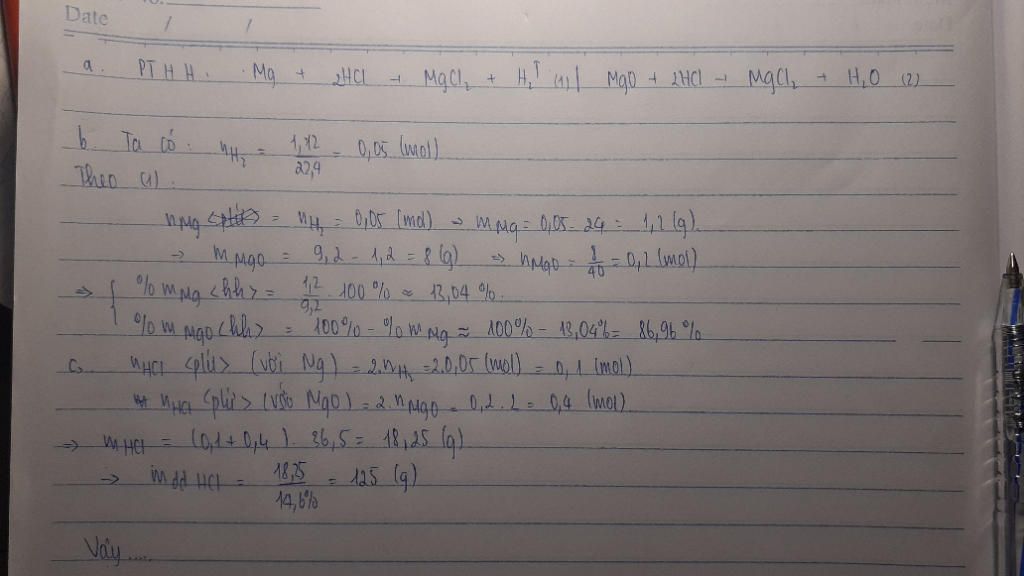 Date / /
a. PTHH: Mg + 2HCl → MgCl₂ + H₂↑ (1) | MgO + 2HCl → MgCl₂ + H₂O (2)
b. Ta có: nH₂ = 1,12/22,4 = 0,05 (mol)
Theo (1):
nMg = nH₂ = 0,05 (mol) → mMg = 0,05 . 24 = 1,2 (g).
→ mMgO = 9,2 - 1,2 = 8 (g) ⇒ nMgO = 8/40 = 0,2 (mol)
⇒ { %mMg <hh> = 1,2/9,2 . 100% ≈ 13,04%.
%mMgO <hh> = 100% - %mMg ≈ 100% - 13,04% = 86,96%
c. nHCl <pứ> (với Mg) = 2.nH₂ = 2.0,05 (mol) = 0,1 (mol)
nHCl <pứ> (với MgO) = 2.nMgO = 0,2.2 = 0,4 (mol)
⇒ mHCl = (0,1 + 0,4) . 36,5 = 18,25 (g)
→ mdd HCl = 18,25/14,6% = 125 (g)
Vậy ....